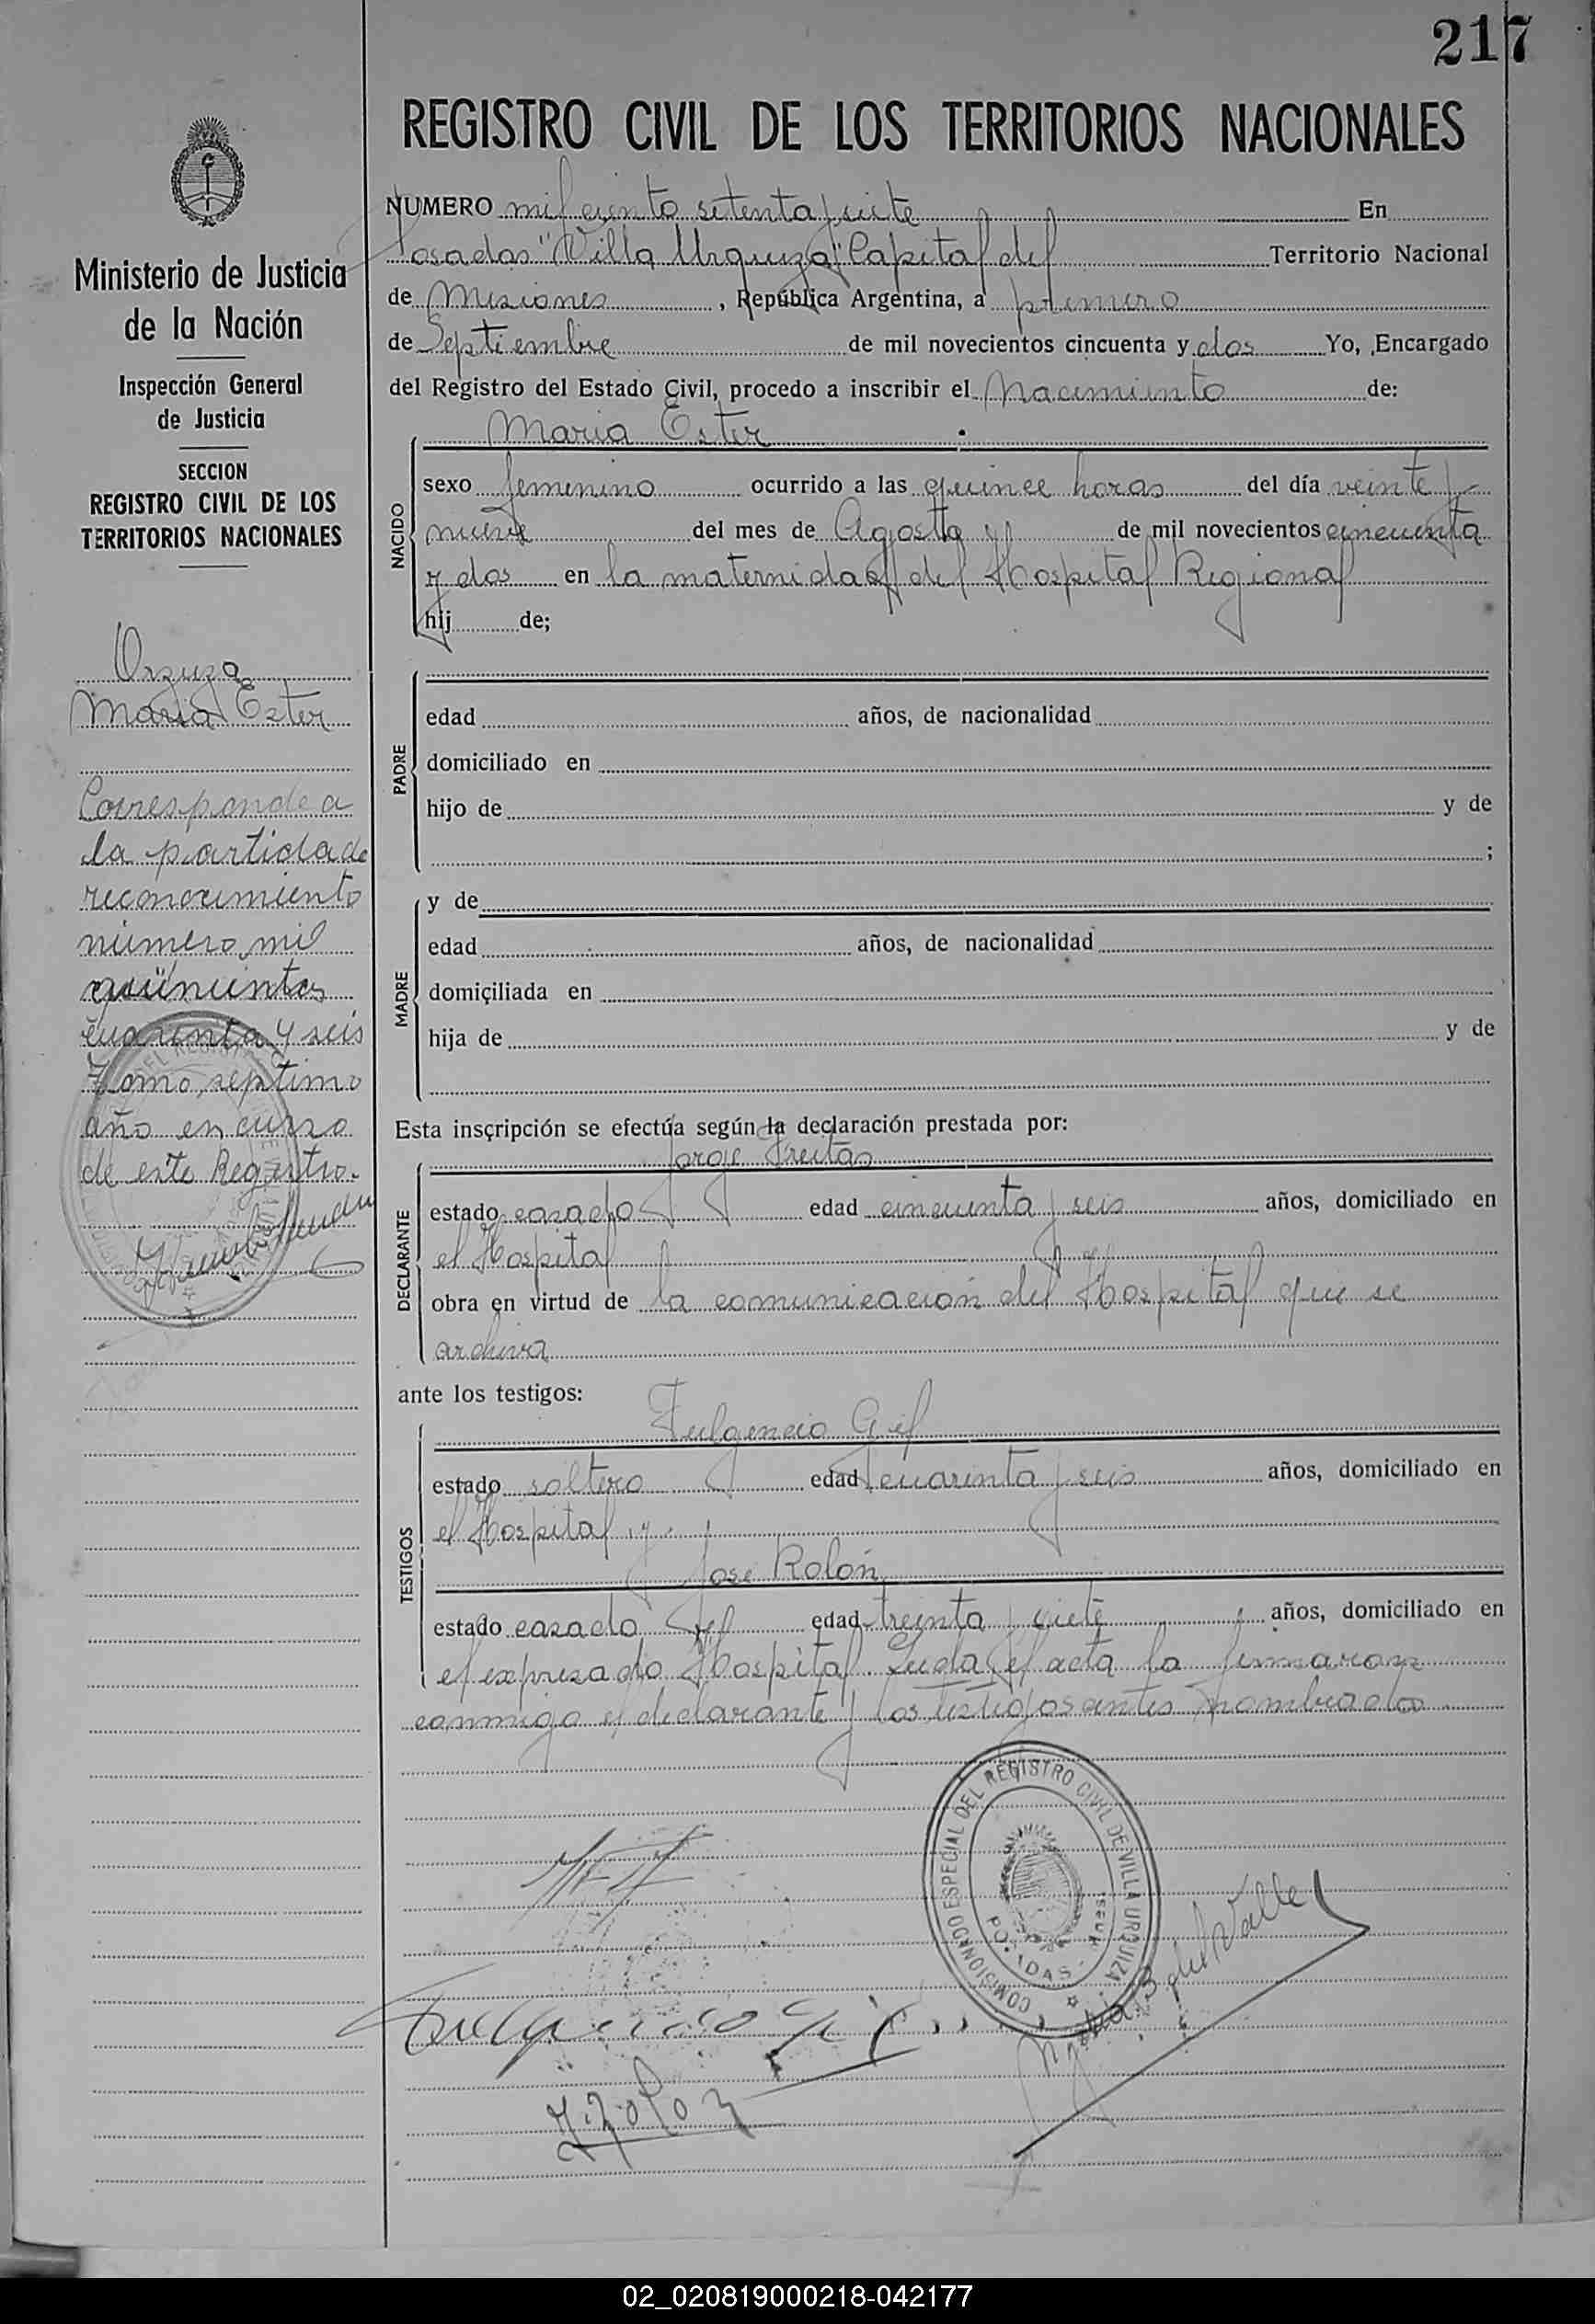 217
REGISTRO CIVIL DE LOS TERRITORIOS NACIONALES
Ministerio de Justicia
de la Nación
Inspección General
de Justicia
SECCION
REGISTRO CIVIL DE LOS
TERRITORIOS NACIONALES
Maria Ester
Corresponde a
la partida de
reconocimiento
número mil
quinientos
cuarenta y seis
Tomo septimo
año en curso
de este Registro.
NUMERO mil ciento setenta y siete En
Posadas "Villa Urquiza" Capital del Territorio Nacional
de Misiones, República Argentina, a primero
de Septiembre de mil novecientos cincuenta y dos Yo, Encargado
del Registro del Estado Civil, procedo a inscribir el Nacimiento de:
Maria Ester
NACIDO
sexo femenino ocurrido a las quince horas del día veinte y
nueve del mes de Agosto de mil novecientos cincuenta
y dos en la maternidad del Hospital Regional
hij de;
PADRE
edad años, de nacionalidad
domiciliado en
hijo de y de
;
MADRE
y de
edad años, de nacionalidad
domiciliada en
hija de y de
Esta inscripción se efectúa según la declaración prestada por:
Jorge Freitas
DECLARANTE
estado casado edad cincuenta y seis años, domiciliado en
el Hospital
obra en virtud de la comunicación del Hospital que se
archiva
ante los testigos:
Fulgencio Gil
TESTIGOS
estado soltero edad cuarenta y seis años, domiciliado en
el Hospital y
Jose Rolón
estado casado edad treinta y siete años, domiciliado en
el expresado Hospital. Leida el acta la firmaron
conmigo el declarante y los testigos antes nombrados
COMISIONADO ESPECIAL DEL REGISTRO CIVIL DE VILLA URQUIZA
POSADAS - Mnes.
Fulgencio Gil
J. Rolon
del Valle
02_020819000218-042177